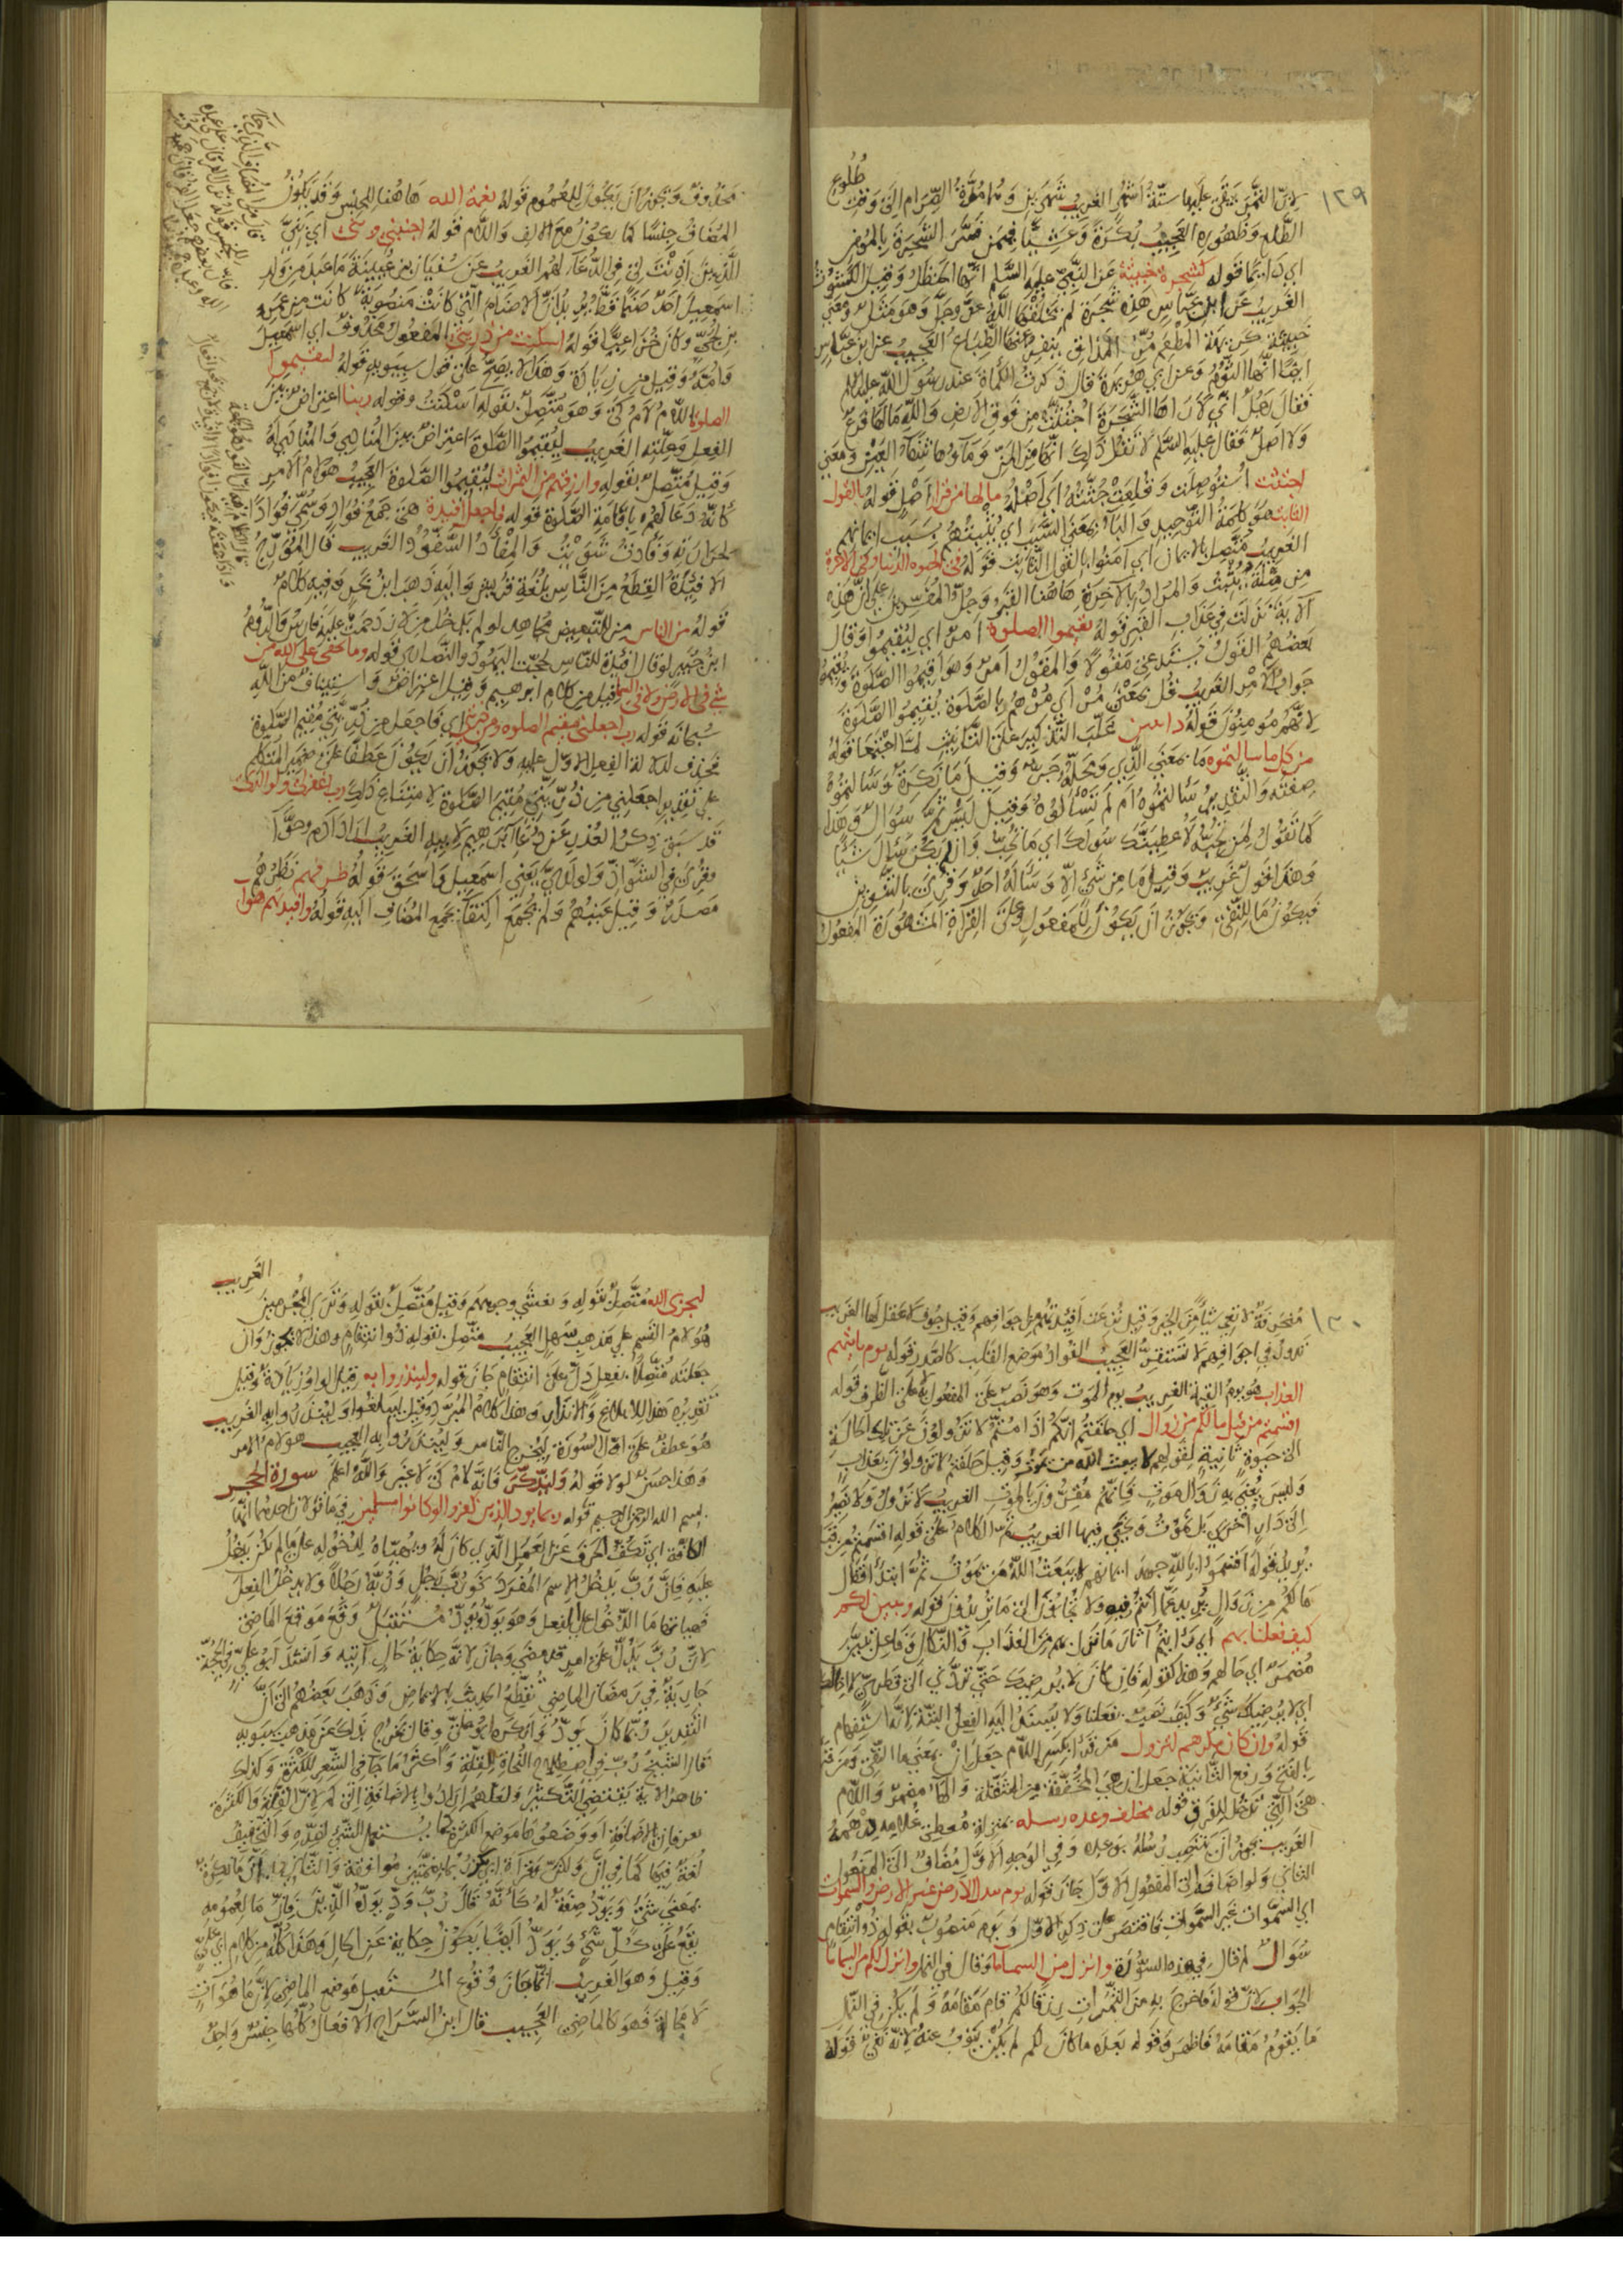 ١٢٩
طُلُوع
لانّ الثمر تبقى عليها ستّة أشهر الغريب شهرين ومدة الصرام الى وقت
الطلع وظهوره العجيب بكرة وعشيا فيمن فسّر الشجرة بالمؤمن
اي دائما قوله كشجرة خبيثة عن النبي عليه السلم انها الحنظل وقيل الكشوث
الغريب عن ابن عباس هذه شجرة لم يخلقها الله عز وجل وهو مثل ومعنى
خبيثة كريهة المطعم مرّ المذاق ينفر عنها الطباع العجيب عن ابن عباس
ايضا انها الثوم وعن ابي هريرة قال ذكرت الكمأة عند رسول الله عليه السلم
فقال رجل اني لأراها الشجرة اجتثت من فوق الارض والله مالها فرع
ولا اصل فقال عليه السلم لا تقل ذلك انها من المنّ وماؤها شفاء العين ومعنى
اجتثت استؤصلت وقلعت جثته اي اصله مالها من قرار اصل قوله بالقول
الثابت هو كلمة التوحيد والباء بمعنى السبب اي يثبتهم بسبب ايمانهم
الغريب متصل بالايمان اي آمنوا بالقول الثابت قوله في الحيوة الدنيا وفي الاخرة
من صلة يثبت والمراد بالآخرة هاهنا القبر وجل المفسرين على ان هذه
الآية نزلت في عذاب القبر قوله يقيموا الصلوة امر اي ليقيموا وقال
بعضهم القول يستدعي مقولا والمقول امر وهو اقيموا الصلوة ويقيموا
جواب الامر الغريب قل بمعنى مُر اي مرهم بالصلوة يقيموا الصلوة
لانهم مؤمنون قوله دائبين غلّب التذكير على التأنيث لما اجتمعا قوله
من كل ما سالتموه ما بمعنى الذي ومحله جرّ وقيل ما نكرة وسالتموه
صفته والتقدير سالتموه ام لم تسألوه وقيل ليس ثمّ سؤال وهذا
كما تقول لمن تحبه لأعطينّك سولك اي ما تحب وان لم يكن سوال شيئا
وهذا قول غريب وقيل ما من شئ الا وساله احد وقرئ بالتنوين
فيكون ما للنفي ويجوز ان يكون المفعول وعلى القراة المشهورة المفعول
محذوف ويجوز ان يكون للعموم قوله نعمة الله هاهنا للجنس وقد يكون
المضاف جنسا كما يكون مع الالف واللام قوله اجنبني وبني اي بنيّ
الذين اذنت لي في الدعاء لهم الغريب عن سفيان بن عيينة ما عبد من ولد
اسمعيل احد صنما قط يريد بل ان الاصنام التي كانت منصوبة كانت من عمرو
بن لحي وكان خزاعيا قوله اسكنت من ذريتي المفعول محذوف اي اسمعيل
وامه وقيل من زيادة وهذا لا يصح على قول سيبويه قوله ليقيموا
الصلوة اللام لام كي وهو متصل بقوله اسكنت وقوله ربنا اعتراض بين
الفعل وعلته الغريب ليقيموا الصلوة اعتراض بين المناهي والمناهيله
وقيل متصل بقوله وارزقهم من الثمرات ليقيموا الصلوة العجيب هو لام الامر
كانه دعا لهم باقامة الصلوة قوله فاجعل افئدة هي جمع فؤاد وسمي فؤادا
لحرارته وفأدت شويت والمفأد السفود الغريب قال المؤرج
الافئدة القطع من الناس بلغة قريش واليه ذهب ابن بحر وفيه كلام
قوله من الناس من للتبعيض مجاهد لو لم يدخل من لازدحمت عليه فارس والروم
ابن جبير لو قال افئدة الناس لحجت اليهود والنصارى قوله وما يخفى على الله من
شئ في الارض ولا في السما قيل من كلام ابرهيم وقيل اعتراض واستيناف من الله
سبحانه قوله رب اجعلني مقيم الصلوة ومن ذريتي اي فاجعل من ذريتي مقيم الصلوة
فحذف لدلالة الفعل الاول عليه ولا يجوز ان يكون عطفا على ضمير المتكلم
على تقدير اجعلني من ذريتي مقيم الصلوة لامتناع ذلك رب اغفر لي ولوالدي
قد سبق ذكر العذر عن دعاء ابرهيم لابيه الغريب اراد ادم وحوّا
وقرئ في الشواذ ولولديّ يعني اسمعيل واسحق قوله طرفهم نظرهم
مصدر وقيل عينهم ولم يجمع اكتفاء بجمع المضاف اليه قوله وافئدتهم هوا
١٣٠
منخرقة لا تعي شيئا من الخير وقيل نزعت افئدتهم من اجوافهم وقيل جوف لا عقل لها الغريب
تدور في اجوافهم لا تستقر العجيب الفؤاد موضع القلب كالصدر قوله يوم ياتيهم
العذاب هو يوم القيمة الغريب يوم الموت وهو نصب على المفعول به لا على الظرف قوله
اقسمتم من قبل مالكم من زوال اي حلفتم انكم اذا متم لا تزولون عن تلك الحالة
الى حيوة ثانية لقولهم لا يبعث الله من يموت وقيل حلفتم لا تزولون بعذاب
وليس يعني به زوال الموت فانهم مقرون بالموت الغريب لا نزول ولا نصير
الى دار اخرى بل نموت ونحيى فيها الغريب تم الكلام على قوله اقسمتم من قبل
يريد قوله اقسموا بالله جهد ايمانهم لا يبعث الله من يموت ثم ابتدأ فقال
مالكم من زوال يريد عما انتم فيه ولا تجاوزن الى ما تريدون قوله وتبين لكم
كيف فعلنا بهم اي رأيتم آثار ما نزل بهم من العذاب والنكال وفاعل تبين
مضمر اي حالهم وهذا كقوله فان كان لا يرضيك حتى تردني الى قطري لا اخالك
اي لا يرضيك شئ وكيف نصب بفعلنا ولا يسند اليه الفعل البتة لانه استفهام
قوله وان كان مكرهم لتزول من قرأ بكسر اللام جعل ان بمعنى ما النفي ومن قرأ
بالفتح ورفع الثانية جعل ان هي المخففة من المثقلة والهاء مضمر واللام
هي التي تدخل للفرق قوله مخلف وعده رسله بمنزلة معطي غلامه درهمه
الغريب يجوز ان ينتصب رسله بوعده وفي الوجه الاول مضاف الى المفعول
الثاني ولو اضافه الى المفعول الاول جاز قوله يوم تبدل الارض غير الارض والسموات
اي السموات غير السموات فاقتصر على ذكر الاول ويوم منصوب بقوله ذو انتقام
سؤال لم قال في هذه السورة وانزل من السما ماء وقال في النمل وانزل لكم من السما ماء
الجواب لان قوله فاخرج به من الثمرات رزقا لكم قام مقامه ولم يكن في النمل
ما يقوم مقامه فاظهر وقوله بعده ما كان لكم لم يكن ينوب عنه لانه نفي قوله
الغريب
ليجزي الله متصل بقوله وتغشى وجوههم وقيل متصل بقوله وترى المجرمين
هو لام القسم على مذهب سهل العجيب متصل بقوله ذو انتقام وهذا لا يجوز وان
جعلته متصلا بفعل دل على انتقام جاز قوله ولينذروا به قيل الواو زيادة وقيل
تقديره هذا للابلاغ والانذار وهذا كلام المبرد وقيل ليبلغوا ولينذروا به الغريب
هو عطف على اول السورة ليخرج الناس ولينذروا به العجيب هو لام الامر
وهذا حسن لولا قوله وليذكر فانه لام كي لا غير والله اعلم سورة الحجر
بسم الله الرحمن الرحيم قوله ربما يود الذين كفروا لو كانوا مسلمين في ما قولان احدهما انها
الكافة اي تكف الحرف عن العمل الذي كان له ويهيئاه لدخوله على ما لم يكن يدخل
عليه فان رب يدخل الاسم المفرد نحو رب رجل وربه رجلا ولا يدخل الفعل
فهيأتها ما الدخول على الفعل وهو يود ويود مستقبل وقع موقع الماضي
لان رب يدل على امر قد مضى وجاز لانه حكاية حال آتيه وانشد ابو علي في الحجة
جارية في رمضان الماضي تقطع الحديث بالايماض وذهب بعضهم الى ان
التقدير ربما كان يود وانكره ابو علي وقال تخرج بذلك عن مذهب سيبويه
قال الشيخ رب في اصطلاح النحاة للقلة واكثر ما جا في الشعر للكثرة وكذلك
ظاهر الآية يقتضي التكثير ولعلهم ارادوا بالاضافة الى كم لان القلة والكثرة
تعرفان بالاضافة او وضعوها موضع الكثرة كما يستعمل الشئ لضده والتخفيف
لغة فيها كما في ان ولكن
بمعنى شئ ويود صفة له كانه قال رب ود يوده الذين فان ما لعمومه
يقع على كل شئ ويود ايضا يكون حكاية عن الحال وهذا كله من كلام ابي علي
وقيل وهو الغريب انما جاز وقوع المستقبل موضع الماضي لان ما هو آت
لا محالة فهو كالماضي العجيب قال ابن السراج الافعال كلها جنس واحد